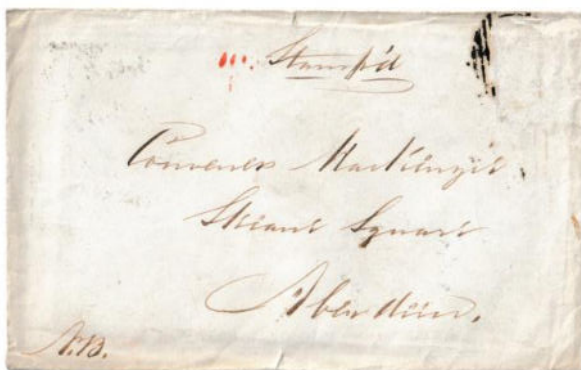 Stamp'd
Convener MacKenzie
Skene Square
Aberdeen.
N.B.